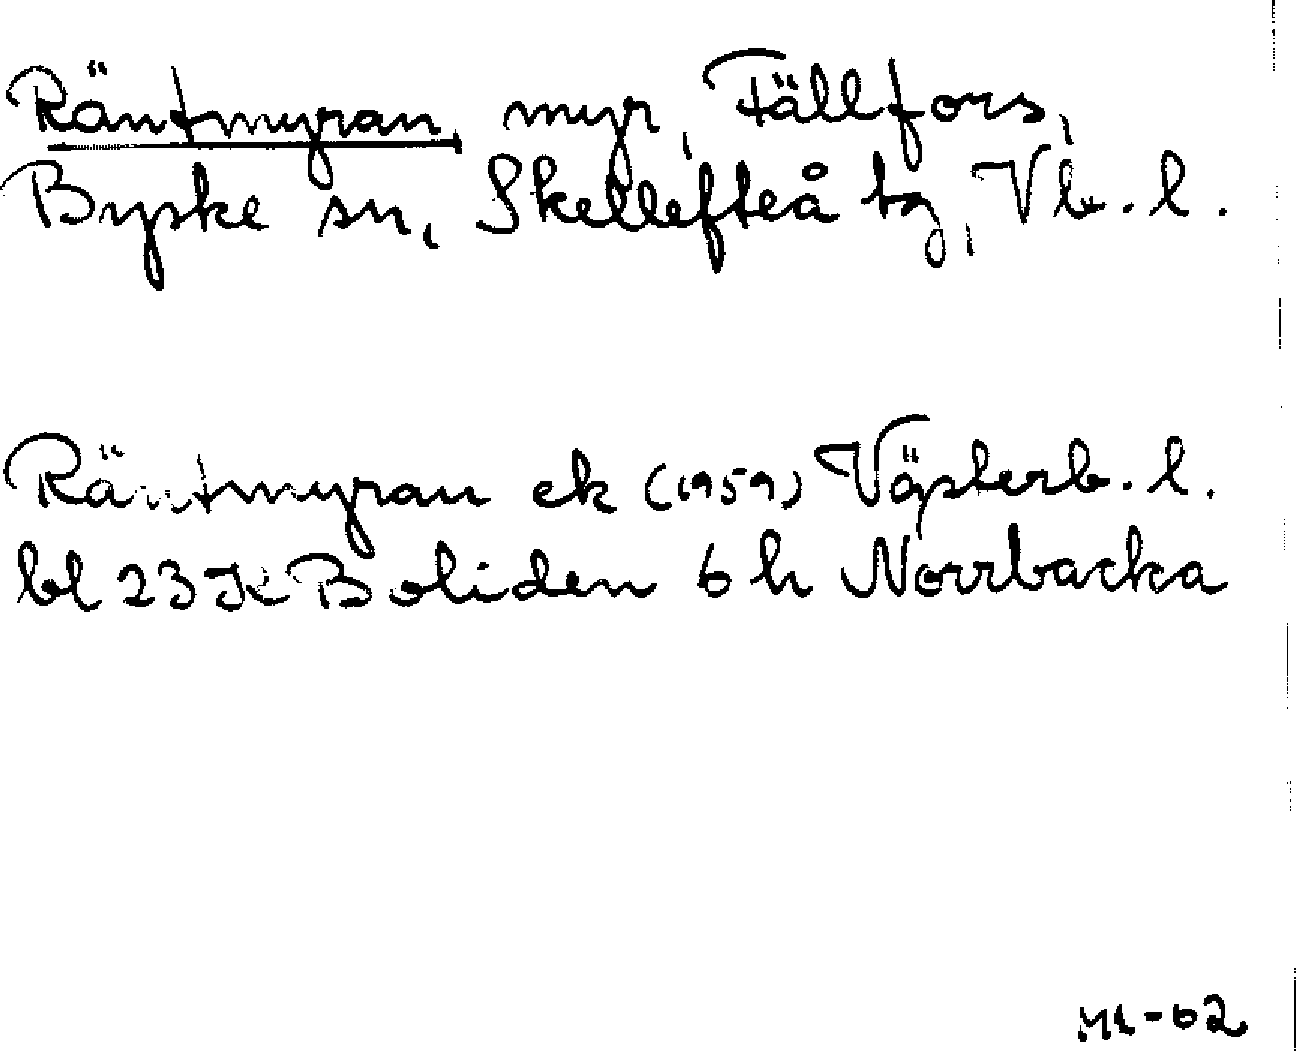 Räntmyran, myr, Fällfors,
Byske sn, Skellefteå tg, Vb. l.
Räntmyran ek (1959) Västerb. l.
bl 23 K Boliden 6 h Norrbacka
-62